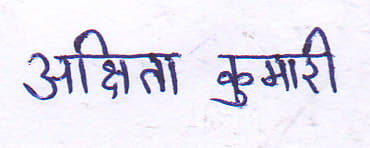 अक्षिता कुमारी